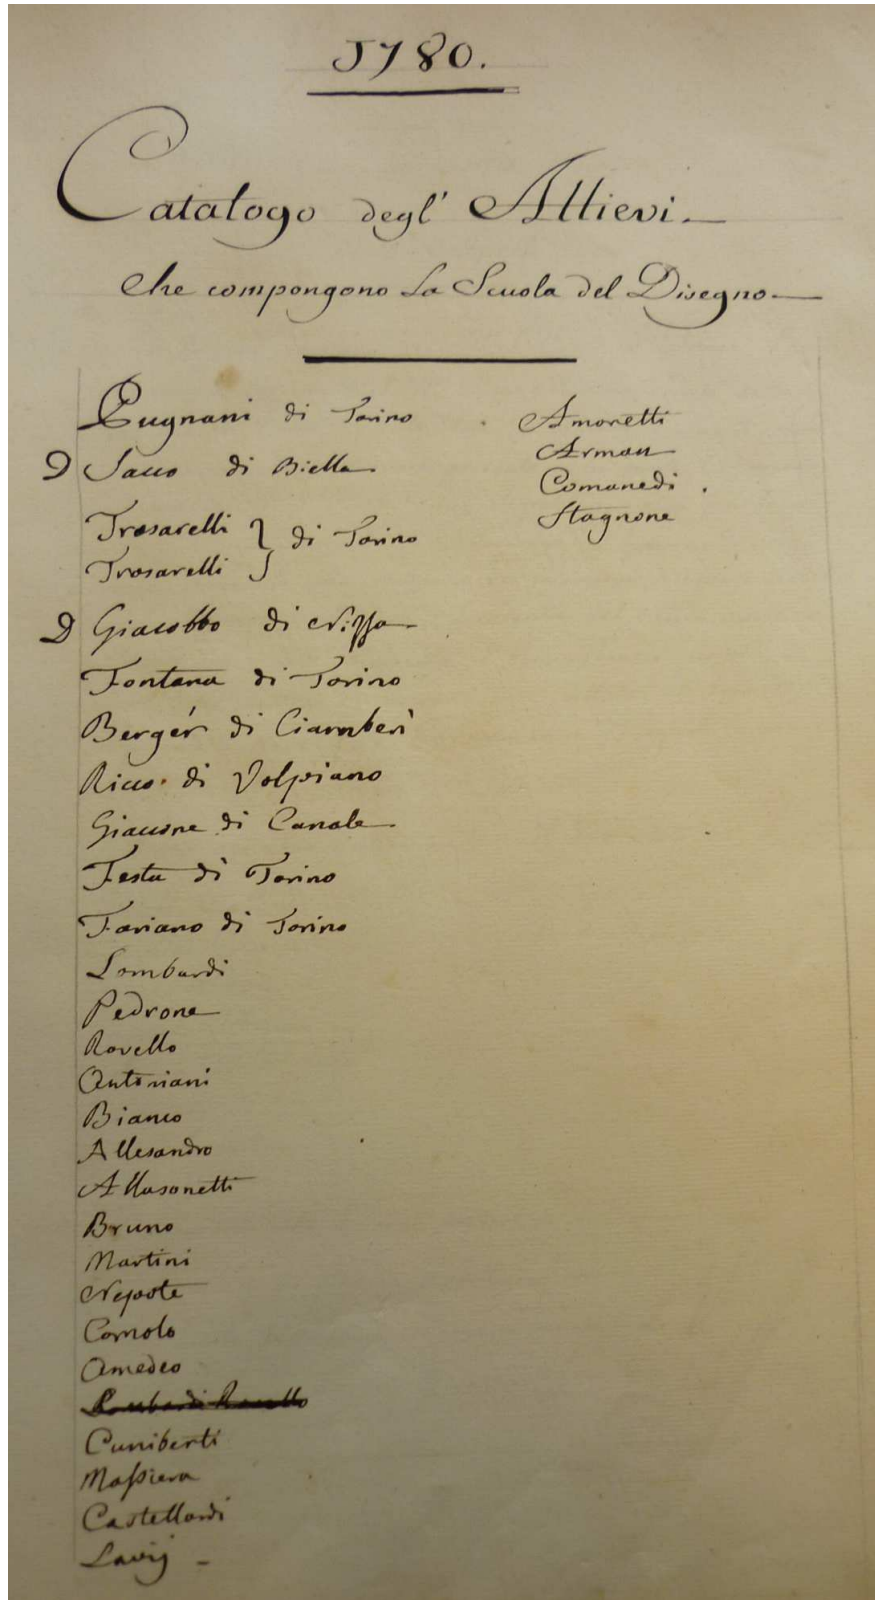 1780.
Catalogo degl' Allievi.
Che compongono La Scuola del Disegno
Pugnani di Torino
D Sacco di Biella
Tresarelli } di Torino
Trosarelli
D Giacobbo di Nizza
Fontana di Torino
Bergér di Ciamberì
Ricco di Volpiano
Giaccone di Canale
Festa di Torino
Fariano di Torino
Lombardi
Pedrone
Rovello
Antoniani
Bianco
Allesandro
Allasonetti
Bruno
Martini
Nepote
Comolo
Amedeo
Lombardi Ravello
Cuniberti
Maſsiera
Castellardi
Lavij
Amoretti
Arman
Comanedi
Stagnone